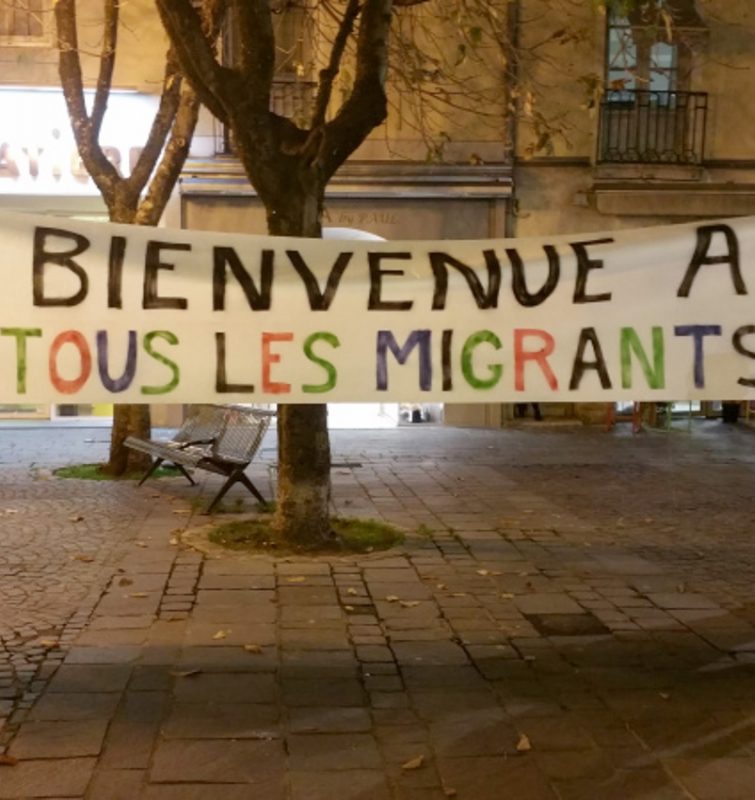 BIENVENUE A
TOUS LES MIGRANTS